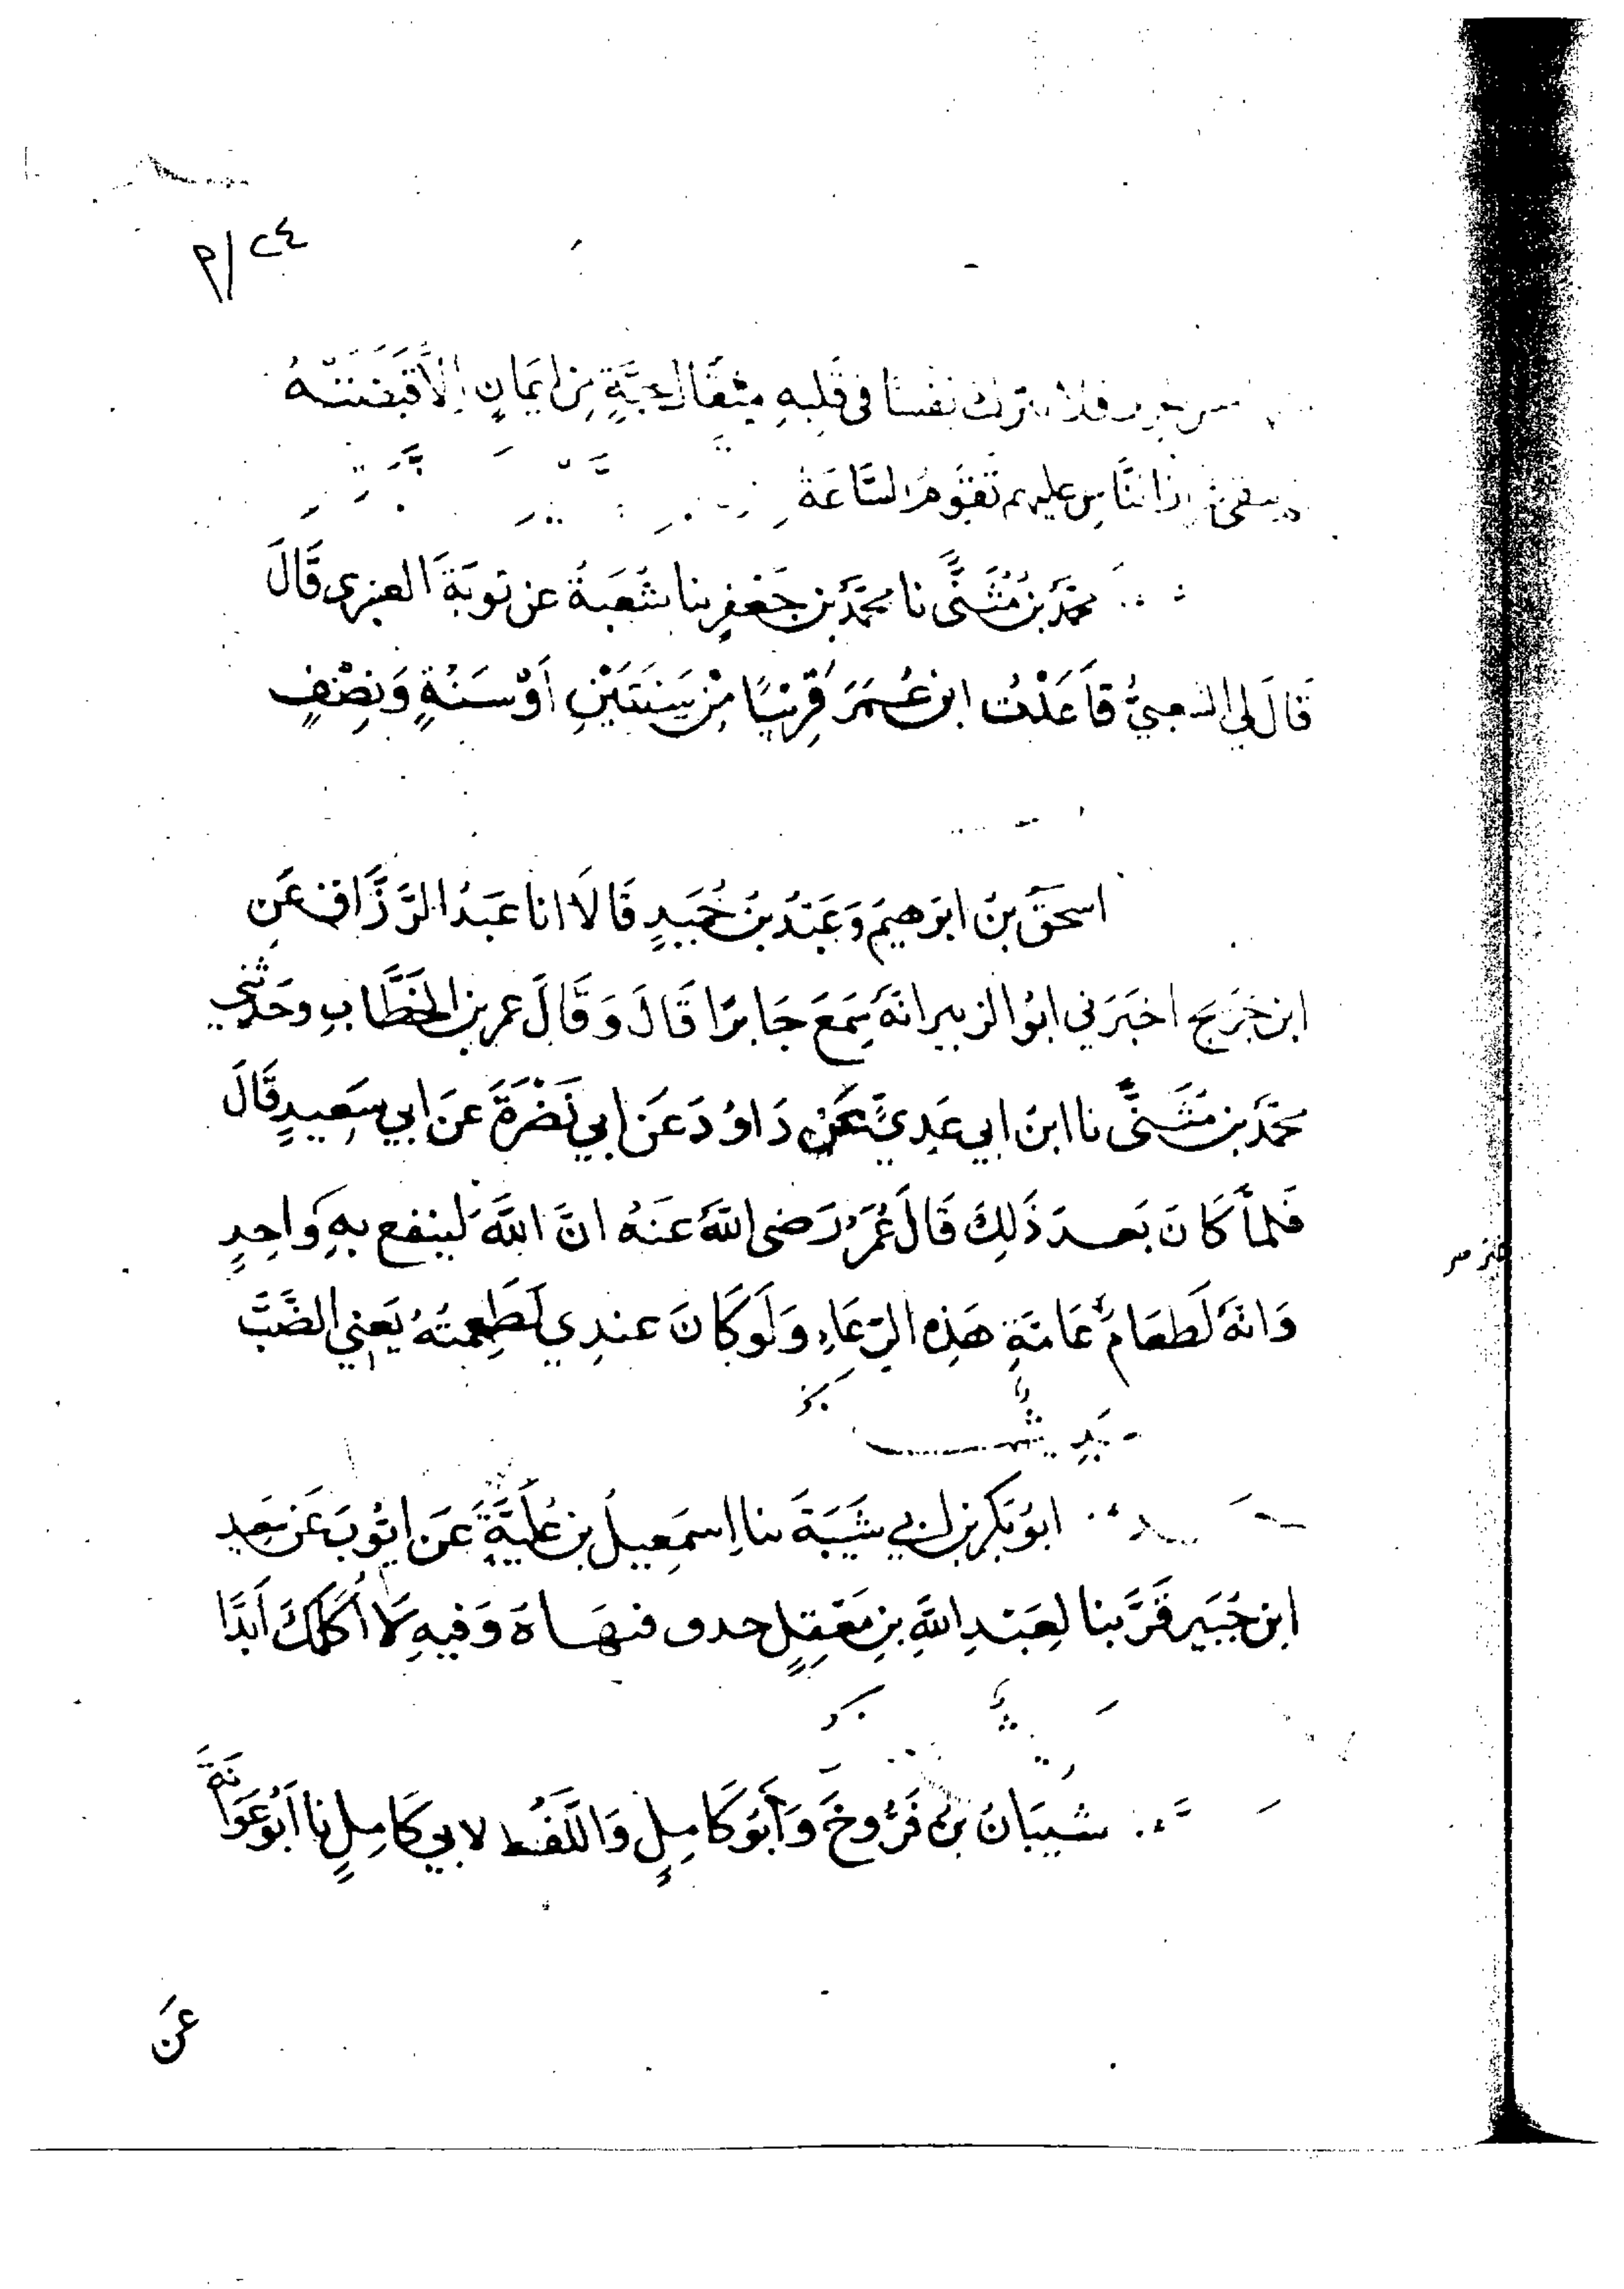 ٢٤/م
فلا تترك نفسا فى قلبه مثقال حبَّةٍ من ايمانٍ الا قبضته
الناس عليهم تقوم السَّاعَة
محمَّد بن مُثَنًّى نا محمَّد بن جَعْفرٍ نا شُعبَةُ عن توبَةَ العنبرى قَالَ
قَالَ لى الشعبيُّ قاعَدْتُ ابن عُمَرَ قَرِيبًا مِنْ سَنَتَيْنِ اَوْ سَنَةٍ وَنِصْفٍ
اسحَقُ بنُ ابرَهيمَ وَعَبْدُ بنُ حُمَيدٍ قَالَا انا عَبدُ الرَّزَّاقِ عَنِ
ابن جُرَيج اخبَرَنى ابُو الزبير انهَ سَمِعَ جَابرًا قَالَ وَقَالَ عمر بن الخَطَّابِ وحَدثني
محمَّد بن مُثَنًّى نا ابنُ ابي عَدِيٍّ عَنْ دَاوُدَ عَن ابي نَضْرَةَ عَن ابي سَعِيدٍ قَالَ
فَلمَّا كَانَ بَعدَ ذَلِكَ قَالَ عُمَرُ رَضى اللهَ عَنهُ انَّ اللهَ لينفع بهِ وَاحِدٍ
وَانهَ لَطَعَامُ عَامَّةِ هَذِهِ الرِّعَاءِ وَلَو كَانَ عندِي لَطَعِمتُهُ يَعني الضَّبَّ
ابُو بَكرِ بن ابي شَيبَةَ نا اِسمَعِيلُ بن عُلَيَّةَ عَن ايُّوبَ عَن سَعِيد
ابن جُبَير قَرَّبنا لعَبْدِ اللَّهِ بنِ مَعْقِلٍ حدف فنهَاهَ وَفيهِ لَا اُكَلّمكَ اَبَدًا
شيبَانُ بنُ فَرُّوخَ وَاَبُو كَامِلٍ وَاللَّفْظ لابي كَامِلٍ نا اَبُو عَوَانَةَ
عَن